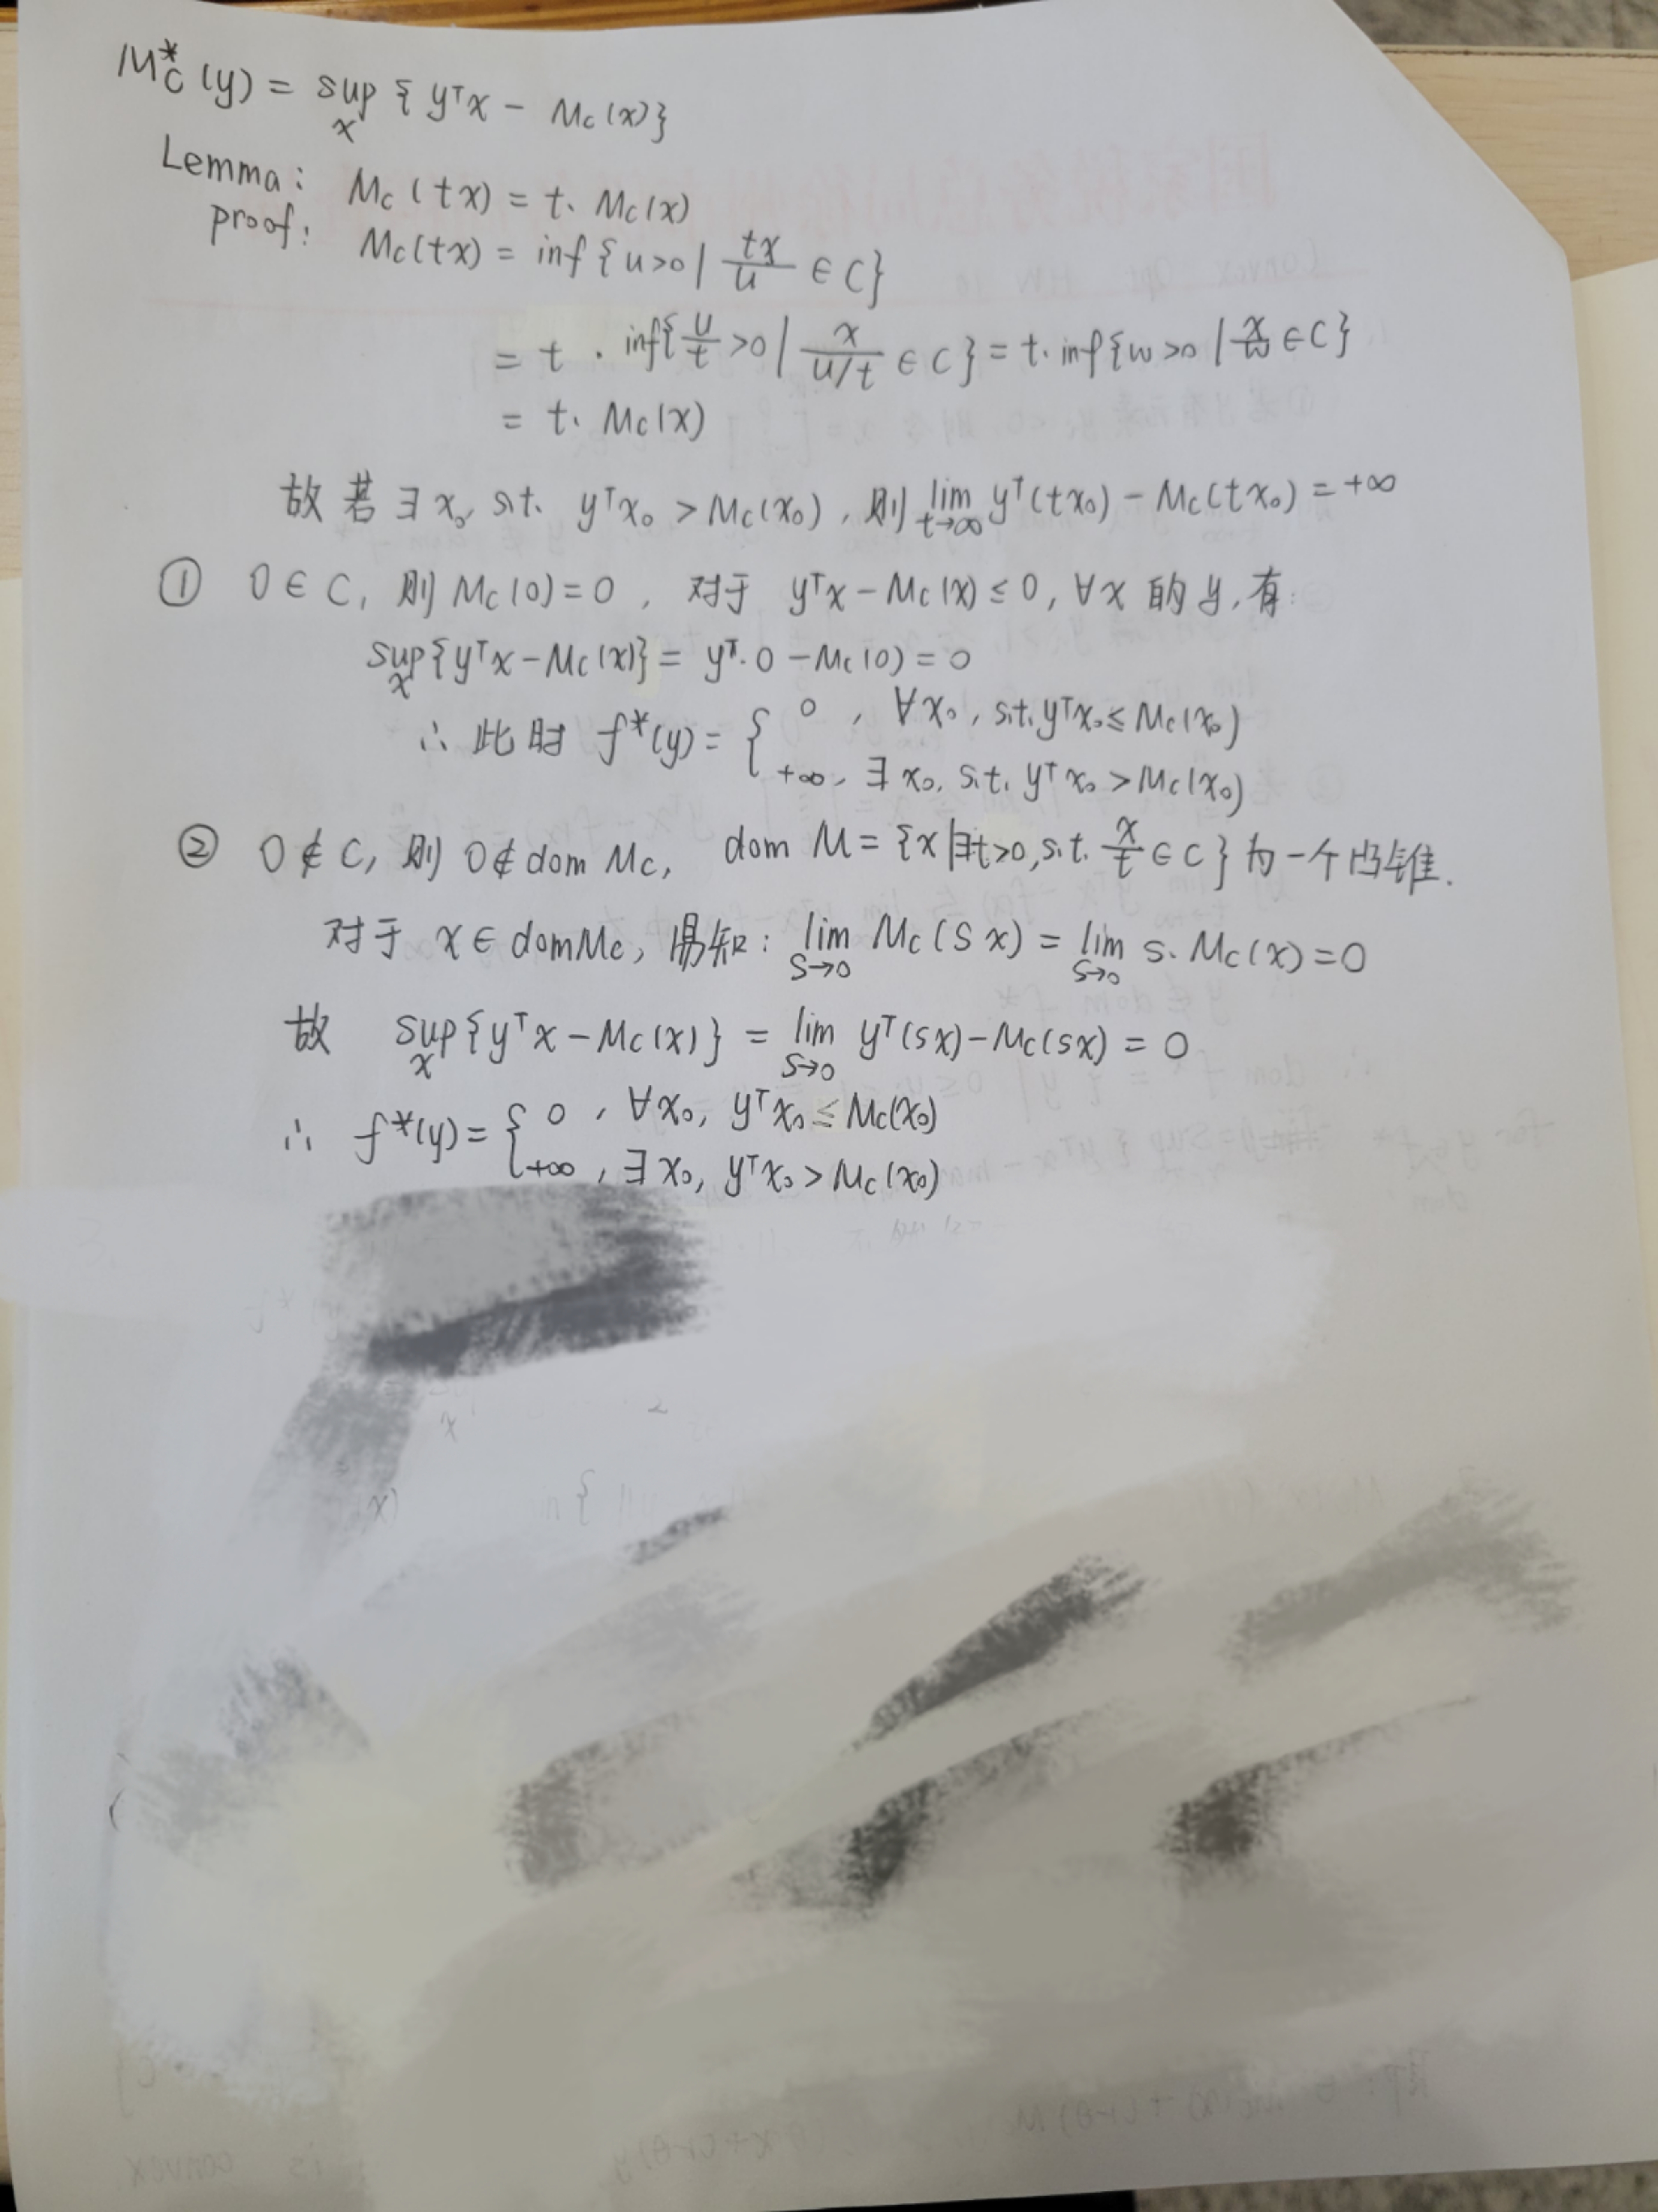 M*_C (y) = sup_x { yᵀx − M_C(x)}
Lemma: M_C (tx) = t. M_C(x)
proof: M_C(tx) = inf {u>0 | tx/u ∈ C}
= t . inf{u/t >0 | x/(u/t) ∈ C} = t. inf{w>0 | x/w ∈ C}
= t. M_C(x)
故若 ∃ x₀, s.t. yᵀx₀ > M_C(x₀), 则 lim_{t→∞} yᵀ(tx₀) − M_C(tx₀) = +∞
① 0 ∈ C, 则 M_C(0)=0, 对于 yᵀx − M_C(x) ≤ 0, ∀x 的 y, 有:
sup_x{yᵀx − M_C(x)} = yᵀ. 0 − M_C(0) = 0
∴ 此时 f*(y) = { 0, ∀x₀, s.t. yᵀx₀ ≤ M_C(x₀)
+∞, ∃ x₀, s.t. yᵀx₀ > M_C(x₀)
② 0 ∉ C, 则 0 ∉ dom M_C, dom M = {x | ∃t>0, s.t. x/t ∈ C} 为一个凸锥.
对于 x ∈ dom M_C, 易知: lim_{s→0} M_C(sx) = lim_{s→0} s. M_C(x) = 0
故 sup_x{yᵀx − M_C(x)} = lim_{s→0} yᵀ(sx) − M_C(sx) = 0
∴ f*(y) = { 0, ∀x₀, yᵀx₀ ≤ M_C(x₀)
+∞, ∃ x₀, yᵀx₀ > M_C(x₀)